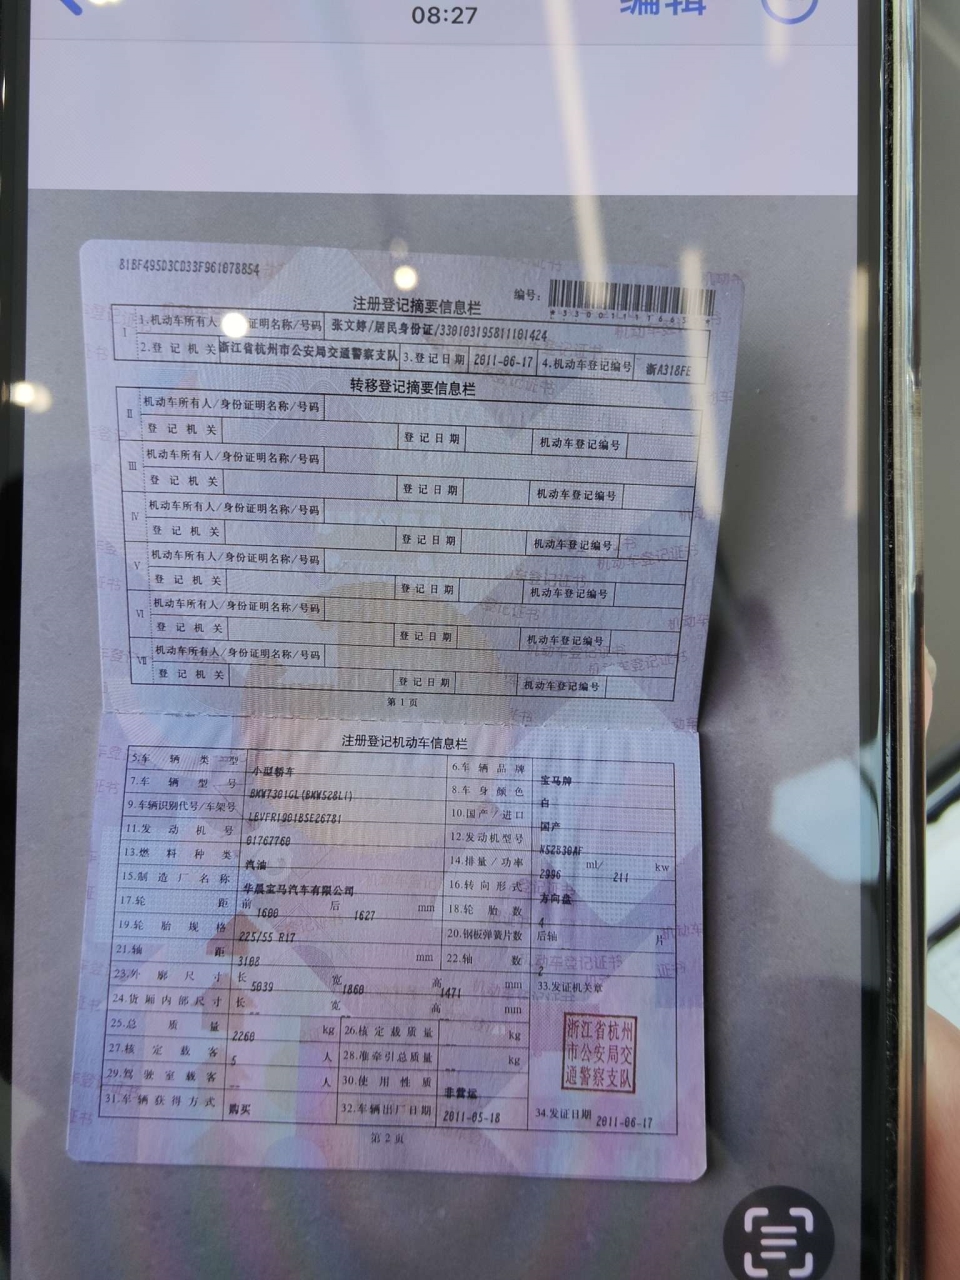 08:27
编辑
81BF495D3CD33F961078854
编号:
注册登记摘要信息栏
I 1.机动车所有人/身份证明名称/号码 张文婷/居民身份证/330103195811101424
2.登记机关 浙江省杭州市公安局交通警察支队 3.登记日期 2011-06-17 4.机动车登记编号 浙A318FE
转移登记摘要信息栏
II 机动车所有人/身份证明名称/号码
登记机关 登记日期 机动车登记编号
III 机动车所有人/身份证明名称/号码
登记机关 登记日期 机动车登记编号
IV 机动车所有人/身份证明名称/号码
登记机关 登记日期 机动车登记编号
V 机动车所有人/身份证明名称/号码
登记机关 登记日期 机动车登记编号
VI 机动车所有人/身份证明名称/号码
登记机关 登记日期 机动车登记编号
VII 机动车所有人/身份证明名称/号码
登记机关 登记日期 机动车登记编号
第1页
注册登记机动车信息栏
5.车辆类型 小型轿车 6.车辆品牌 宝马牌
7.车辆型号 BMW7301GL(BMW528LI) 8.车身颜色 白
9.车辆识别代号/车架号 10.国产/进口 国产
11.发动机号 01767760 12.发动机型号 N52B30AF
13.燃料种类 汽油 14.排量/功率 2996 ml/ 211 kw
15.制造厂名称 华晨宝马汽车有限公司 16.转向形式 方向盘
17.轮距 前 1600 后 1627 mm 18.轮胎数 4
19.轮胎规格 225/55 R17 20.钢板弹簧片数 后轴 片
21.轴距 3108 mm 22.轴数 2
23.外廓尺寸 长 5039 宽 1860 高 1471 mm 33.发证机关章
24.货厢内部尺寸 长 -- 宽 -- 高 -- mm
浙江省杭州
市公安局交
通警察支队
25.总质量 2260 kg 26.核定载质量 -- kg
27.核定载客 5 人 28.准牵引总质量 -- kg
29.驾驶室载客 -- 人 30.使用性质 非营运
31.车辆获得方式 购买 32.车辆出厂日期 2011-05-18 34.发证日期 2011-06-17
第2页